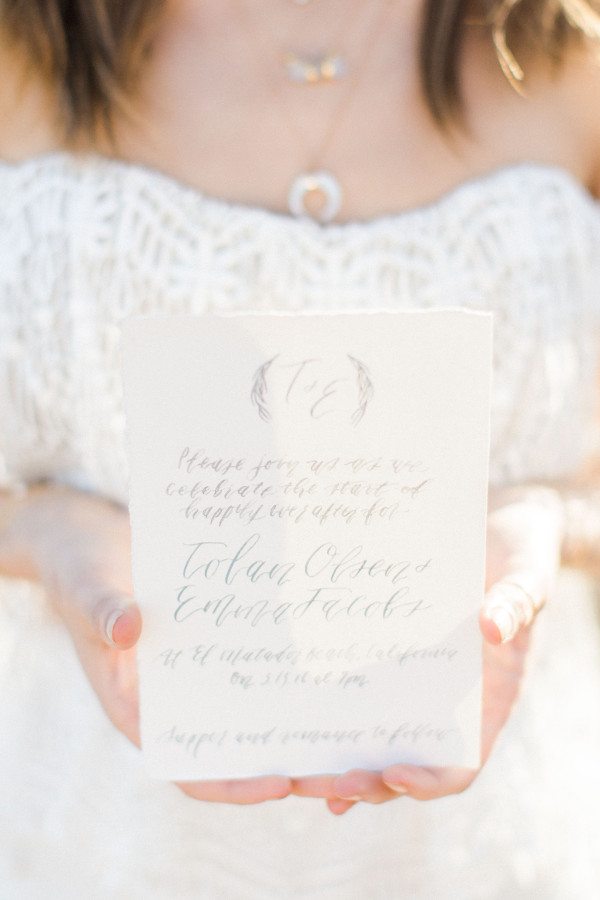 T & E
Please join us as we
celebrate the start of
happily ever after for
Tolan Olsen &
Emma Jacobs
At El Matador Beach, California
On at 7pm
Supper and romance to follow